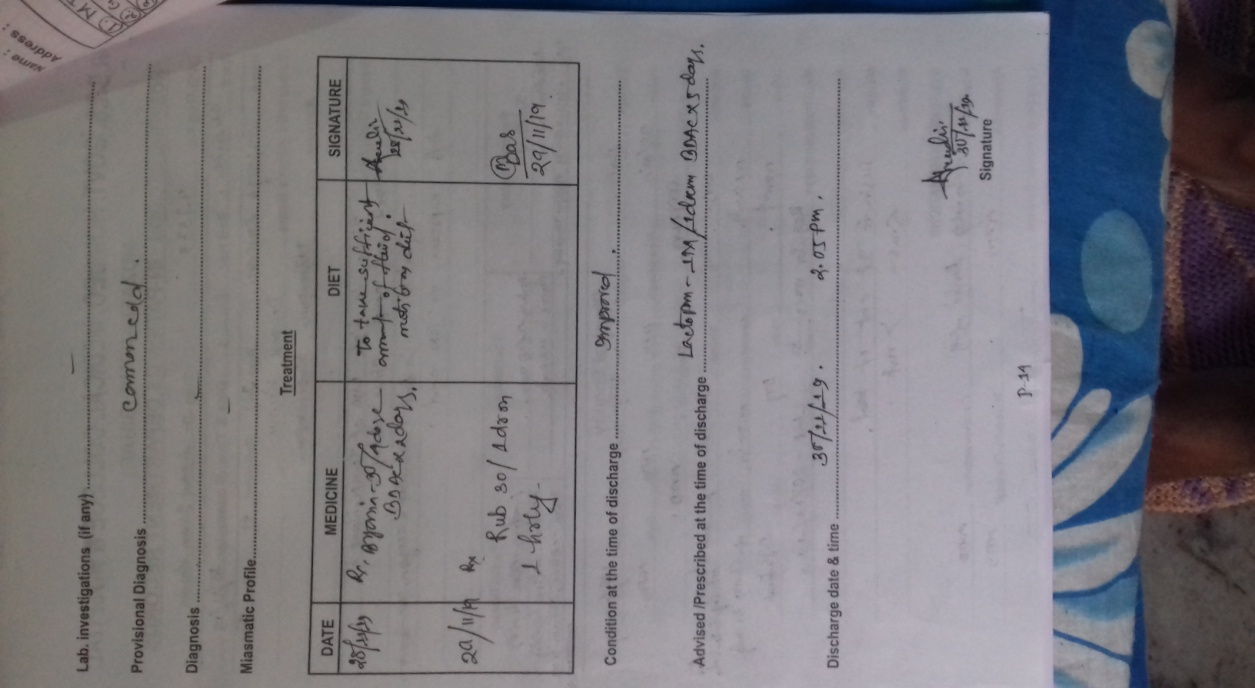 Name :
Address :
(1) M
Lab. investigations (if any) ........ –
Provisional Diagnosis ........ Common cold .
Diagnosis ........
Miasmatic Profile ........ –
Treatment
DATE MEDICINE DIET SIGNATURE
28/11/19 Rx, 30/4dose To take sufficient
BDAC x 2days. amount of fluid.
nutritious diet 28/11/19
29/11/19 Rx
Rub 30/ 1dram Bas
1 hrly - 29/11/19.
Condition at the time of discharge ........ Improved .
Advised /Prescribed at the time of discharge ........ - 1M/1dram BDAC x 5days.
Discharge date & time ........ 30/11/19. 2.05 pm.
30/11/19.
Signature
P-19